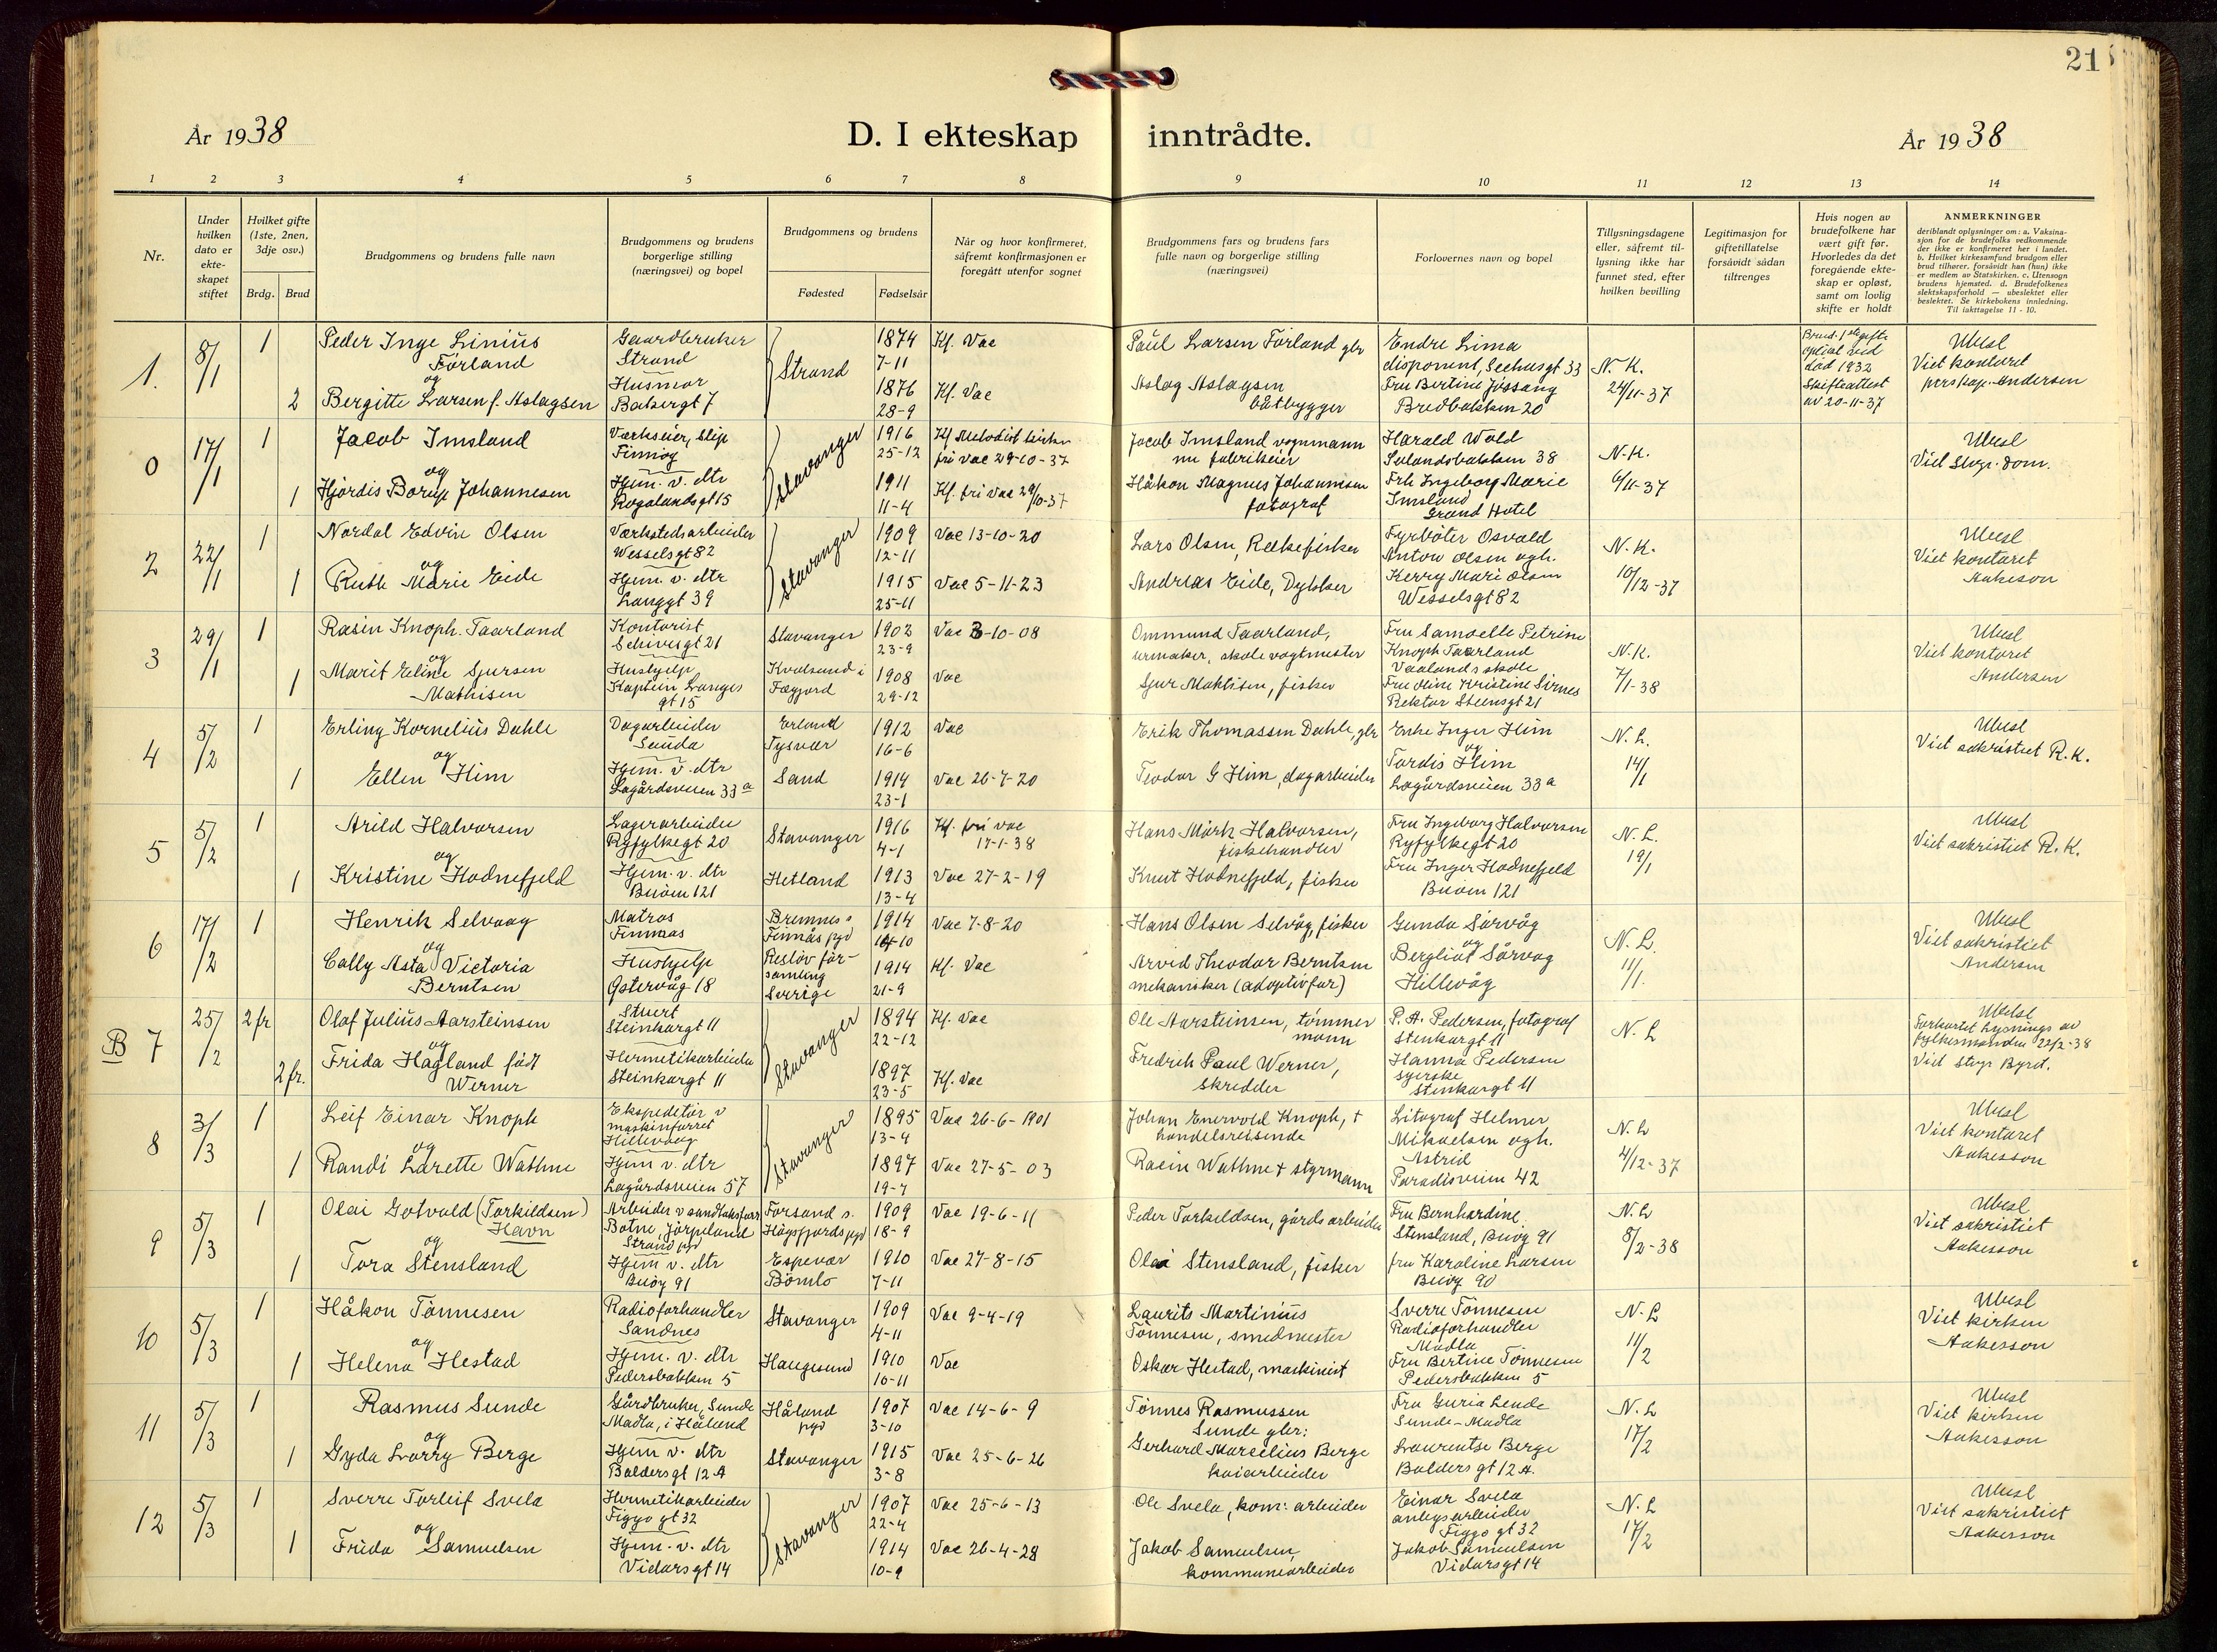 21
År 1938
D. I ekteskap inntrådte.
År 1938
1 2 3 4 5 6 7 8 9 10 11 12 13 14
Nr.
Under hvilken dato er ekte-skapet stiftet
Hvilket gifte (1ste, 2nen, 3dje osv.)
Brdg. Brud
Brudgommens og brudens fulle navn
Brudgommens og brudens borgerlige stilling (næringsvei) og bopel
Brudgommens og brudens
Fødested Fødselsår
Når og hvor konfirmeret, såfremt konfirmasjonen er foregått utenfor sognet
Brudgommens fars og brudens fars fulle navn og borgerlige stilling (næringsvei)
Forlovernes navn og bopel
Tillysningsdagene eller, såfremt til-lysning ikke har funnet sted, efter hvilken bevilling
Legitimasjon for giftetillatelse forsåvidt sådan tiltrenges
Hvis nogen av brudefolkene har vært gift før. Hvorledes da det foregående ekte-skap er opløst, samt om lovlig skifte er holdt
ANMERKNINGER
deriblandt oplysninger om: a. Vaksina-sjon for de brudefolks vedkommende der ikke er konfirmeret her i landet. b. Hvilket kirkesamfund brudgom eller brud tilhører, forsåvidt han (hun) ikke er medlem av Statskirken. c. Utensogn brudens hjemsted. d. Brudefolkenes slektskapsforhold — ubeslektet eller beslektet. Se kirkebokens innledning. Til iakttagelse 11 - 10.
1. 8/1 1 Peder Inge Linius Förland
Gaardbruker Strand
Strand 1874 7-11 Kf. Vac
Paul Larsen Förland gbr
Endre Lima disponent, Seehusgt 33
N. K. 24/11-37
og 2 Bergitte Larsen f. Aslagsen
Husmor Bakergt 7
1876 28-9 Kf. Vac
Aslag Aslagsen båtbygger
Fru Bertine Jössang Bredbakken 20
Brud. 1ste gifte opløst ved död 1932 Skifteattest av 20-11-37
Ubesl Viet kontoret pers kap. Andersen
0 17/1 1 Jacob Imsland
Værkseier, Slip Finnøy
Stavanger 1916 25-12 Kf Metodist kirken fri vac 29-10-37
Jacob Imsland vognmann nu fabrikeier
Harald Wold Solandsbakken 38
N.K. 6/11-37
og 1 Hjördis Borup Johannesen
Hjem. v. dtr Rogalandsgt 15
1911 11-4 Kf. fri vac 29/10-37
Håkon Magnus Johannesen fotograf
Frk Ingeborg Marie Imsland Grand Hotel
Ubesl Viet Stvgr. dom.
2 22/1 1 Nordal Edvin Olsen
Værkstedsarbeider Wesselsgt 82
Stavanger 1909 12-11 Vac 13-10-20
Lars Olsen, Rekefisker
Fyrböter Osvald Anton Olsen ogh.
N. K. 10/12-37
og 1 Ruth Marie Eide
Hjem. v. dtr Langgt 39
1915 25-11 Vac 5-11-23
Andreas Eide, Dykker
Kerry Mari Olsen Wesselsgt 82
Ubesl Viet kontoret Aakeson
3 29/1 1 Rasin Knoph. Taarland
Kontorist Schivesgt 21
Stavanger 1902 23-9 Vac 3-10-08
Ommund Taarland, urmaker, skole vagtmester
Fru Samoelle Petrine Knoph Taarland Vaalands skole
N.K. 7/1-38
og 1 Marit Eline Sjursen Mathisen
Hushjelp Kaptein Langes gt 15
Kvalsund i 1908 29-12 Vac
Sjur Mathisen, fisker
Fru Oline Kristine Sirnes Rektor Steensgt 21
Ubesl Viet kontoret Andersen
4 5/2 1 Erling Kornelius Dahle
Dagarbeider Sauda
Erland Tysvær 1912 16-6 Vac
Erik Thomassen Dahle, gbr
Enke Inger Him
N. L. 14/1
og 1 Ellen Him
Hjem. v. dtr Lagårdsveien 33 a
Sand 1914 23-1 Vac 26-7-20
Teodor G Him, dagarbeider
og Tordis Him Lagårdsveien 33 a
Ubesl Viet sakristiet R. K.
5 5/2 1 Arild Halvorsen
Lagerarbeider Ryfylkegt 20
Stavanger 1916 4-1 Kf. fri vac 17-1-38
Hans Mörk Halvorsen, fiskehandler
Fru Ingeborg Halvorsen Ryfylkegt 20
N. L. 19/1
og 1 Kristine Hodnefjeld
Hjem. v. dtr Buöen 121
Hetland 1913 13-4 Vac 27-2-19
Knut Hodnefjeld, fisker
Fru Inger Hodnefjeld Buöen 121
Ubesl Viet sakristiet R. K.
6 17/2 1 Henrik Selvaag
Matros Finnaas
Bremnes s Finnås pgd 1914 Vac 7-8-20
Hans Olsen Selvåg, fisker
Gunda Sörvåg
N. L. 11/1.
og 1 Cally Asta Victoria Berntsen
Hushjelp Østervåg 18
Reslöv för-samling Sverige 1914 21-9 Kf. Vac
Arvid Theodor Berntsen mekaniker (adoptivfar)
og Bergliot Sörvag Hillevåg
Ubesl Viet sakristiet Andersen
B 7 25/2 2 fr Olaf Julius Aarsteinsen
Stuert Steinkargt 11
Stavanger 1894 22-12 Kf. Vac
Ole Aarsteinsen, tömmer mann
P. A. Pedersen, fotograf Stenkargt 11
N. L
og 2 fr. Frida Hagland født Werner
Hermetikarbeider Steinkargt 11
1897 23-5 Kf. Vac
Fredrik Paul Werner, skredder
Hanna Pedersen syerske Stenkargt 11
Ubesl Forkortet lysnings av fylkesmanden 22/2-38 Viet Stvgr Byrd.
8 3/3 1 Leif Einar Knoph
Ekspeditør v maskinforret Hillevaag
Stavanger 1895 13-4 Vac 26-6-1901
Johan Enervold Knoph, † handelsreisende
Litograf Helmer Mikaelsen ogh.
N. L 4/12-37
og 1 Randi Larette Wathne
Hjem v. dtr Lagårdsveien 57
1897 19-7 Vac 27-5-03
Rasin Wathne † styrmann
Astrid Paradisveien 42
Ubesl Viet kontoret Aakesson
9 5/3 1 Olai Gotvald (Torkildsen) Havn
Arbeider v Botne, Jørpeland Strand pgd
Forsand s. Högsfjords pgd 1909 18-9 Vac 19-6-11
Peder Torkeldsen, gårdsarbeider
Fru Bernhardine Stensland, Buøy 91
N. L 8/2-38
og 1 Tora Stensland
Hjem v. dtr Buöy 91
Espevær Bömlo 1910 7-11 Vac 27-8-15
Olai Stensland, fisker
fru Karoline Larsen Buøy 90
Ubesl Viet sakristiet Aakesson
10 5/3 1 Håkon Tönnesen
Radioforhandler Sandnes
Stavanger 1909 4-11 Vac 9-4-19
Laurits Martinius Tönnesen, smedmester
Sverre Tönnesen Radioforhandler Madla
N. L 11/2
og 1 Helena Hestad
Hjem. v. dtr Pedersbakken 5
Haugesund 1910 10-11 Vac
Oskar Hestad, maskinist
Fru Bertine Tönnesen Pedersbakken 5
Ubesl Viet kirken Aakesson
11 5/3 1 Rasmus Sunde
Gårdbruker, Sunde Madla, i Håland
Håland pgd 1907 3-10 Vac 14-6-9
Tönnes Rasmussen Sunde gbr:
Fru Guria Lende Sunde-Madla
N. L 17/2
og 1 Gyda Lorry Berge
Hjem v. dtr Baldersgt 12 A
Stavanger 1915 3-8 Vac 25-6-26
Gerhard Marselius Berge kaiarbeider
Laurentse Berge Balders gt 12 A.
Ubesl Viet kirken Aakesson
12 5/3 1 Sverre Torleif Svela
Hermetikarbeider Figgo gt 32
Stavanger 1907 22-4 Vac 25-6-13
Ole Svela, kom: arbeider
Einar Svela anlegsarbeider Figgo gt 32
N. L 17/2
og 1 Frida Samuelsen
Hjem. v. dtr Vidarsgt 14
1914 10-9 Vac 26-4-28
Jakob Samuelsen, kommunearbeider
Jakob Samuelsen Vidarsgt 14
Ubesl Viet sakristiet Aakesson